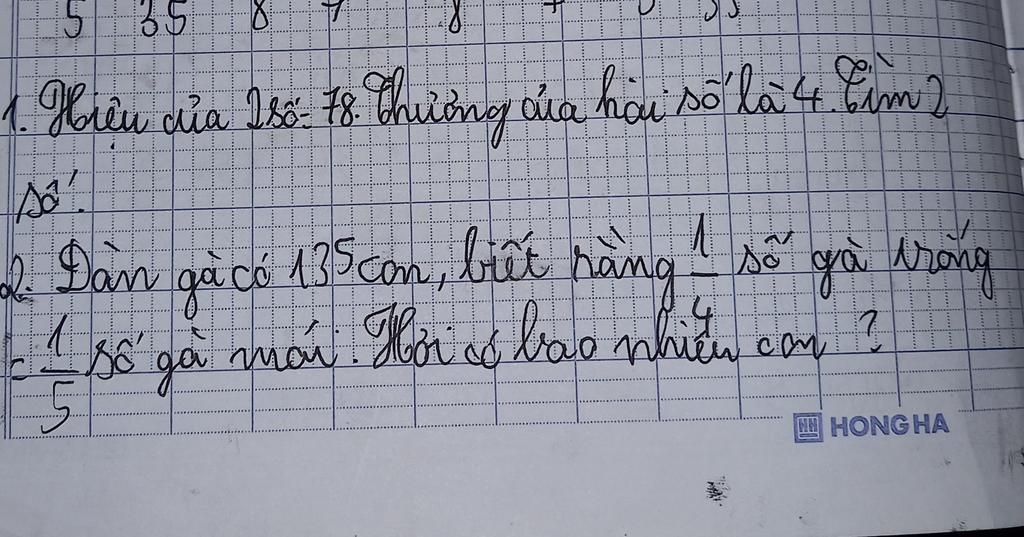 5 35 8 7 8 7
1. Hiệu của 2 số = 78. Thương của hai số là 4. Tìm 2
số.
2. Đàn gà có 135 con, biết rằng 1/4 số gà trống
= 1/5 số gà mái. Hỏi có bao nhiêu con ?
HH HONG HA